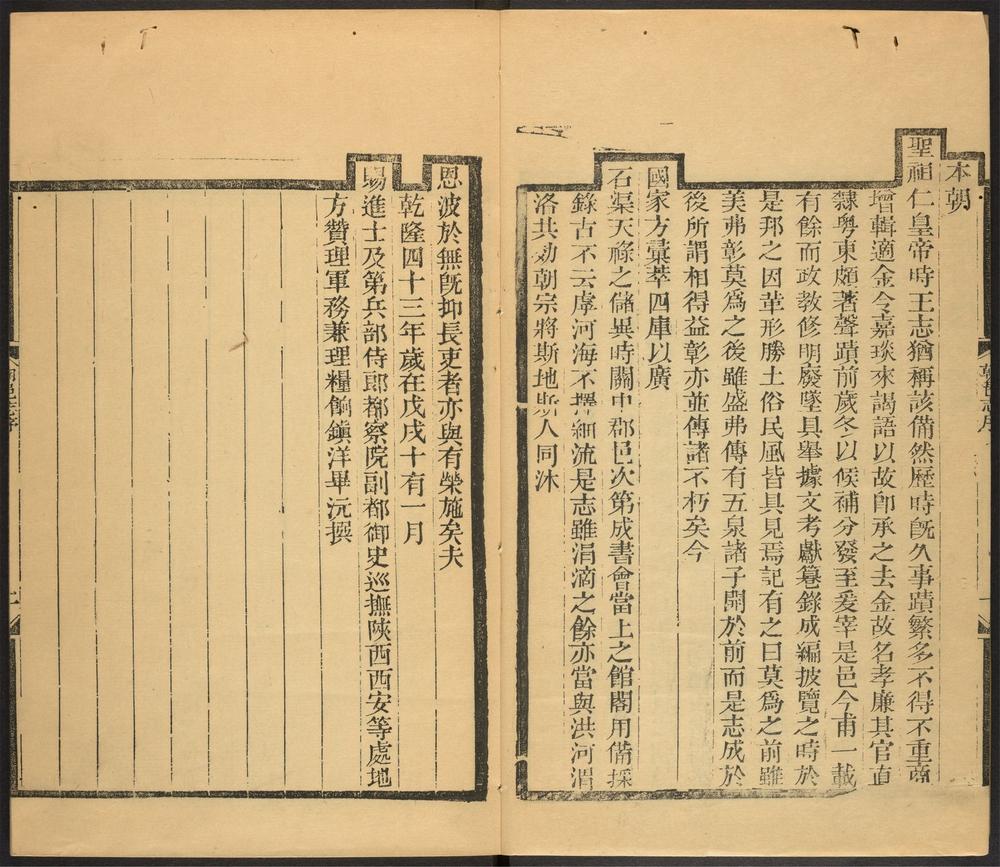 本朝
聖祖仁皇帝時王志猶稱該備然歷時旣久事蹟繁多不得不重商
增輯適金令嘉琰來謁語以故卽承之去金故名孝廉其官直
隸粵東頗著聲蹟前歲冬以候補分發至爰宰是邑今甫一載
有餘而政教修明廢墜具舉據文考獻篹錄成編披覽之時於
是邦之因革形勝土俗民風皆具見焉記有之曰莫爲之前雖
美弗彰莫爲之後雖盛弗傳有五泉諸子開於前而是志成於
後所謂相得益彰亦並傳諸不朽矣今
國家方彚萃四庫以廣
石渠天祿之儲異時關中郡邑次第成書會當上之館閣用備採
錄古不云虖河海不擇細流是志雖涓滴之餘亦當與洪河渭
洛共効朝宗將斯地斯人同沐
朝邑志序
恩波於無旣抑長吏者亦與有榮施矣夫
乾隆四十三年歲在戊戌十有一月
賜進士及第兵部侍郎都察院副都御史巡撫陝西西安等處地
方贊理軍務兼理糧餉鎭洋畢沅撰